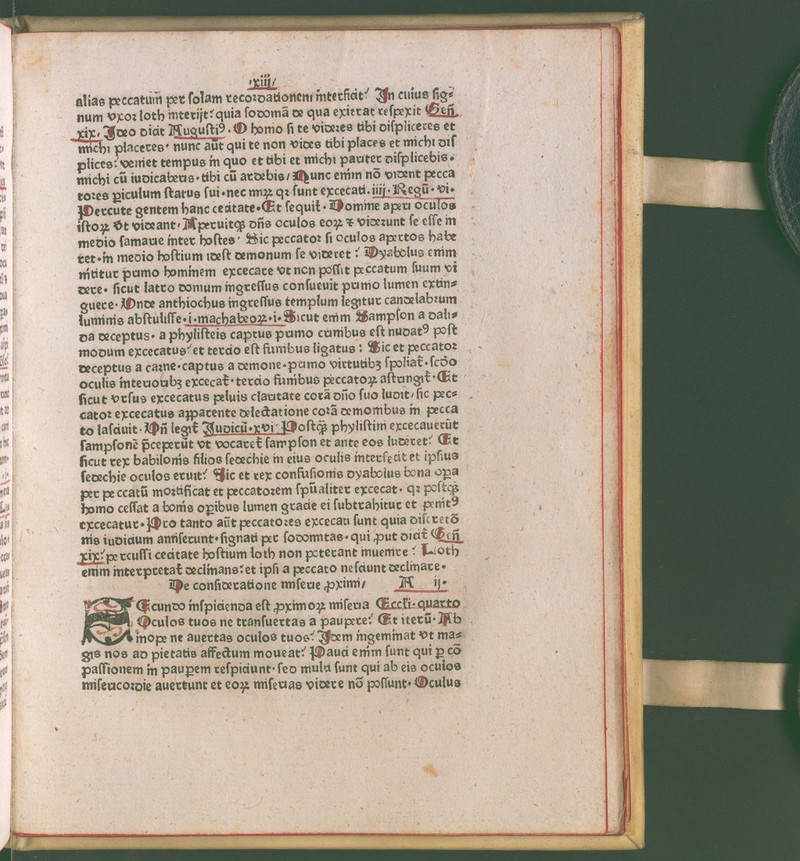 ·xiij·
alias peccatum per solam recordationem interficit? In cuius sig⸗
num vxor loth interijt? quia sodomā de qua exierat respexit Geñ
xix. Ideo dicit Augusti⁹. O homo si te videres tibi displiceres et
michi placeres· nunc aūt qui te non vides tibi places et michi dis
plices? veniet tempus in quo et tibi et michi pariter displicebis·
michi cū iudicaberis· tibi cū ardebis/ Nunc enim nō vident pecca
tores ꝑiculum status sui· nec miꝝ qꝛ sunt excecati. iiij· Regū· vi·
Percute gentem hanc cecitate· Et sequit̄· Domine aperi oculos
istoꝝ vt videant· Aperuitqꝫ dn̄s oculos eoꝝ ⁊ viderunt se esse in
medio samarie inter hostes· Sic peccator si oculos apertos habe
ret· in medio hostium idest demonum se videret? Dyabolus enim
nititur primo hominem excecare vt non possit peccatum suum vi
dere· sicut latro domum ingressus consueuit primo lumen extin⸗
guere· Vnde anthiochus ingressus templum legitur candelabrum
luminis abstulisse· i· machabeoꝝ· i· Sicut enim Sampson a dali⸗
da deceptus· a phylisteis captus primo crinibus est nudat⁹ post
modum excecatus? et tercio est funibus ligatus: Sic et peccator
deceptus a carne· captus a demone· primo virtutibꝫ spoliat̄· scd̄o
oculis interioribꝫ excecat̄· tercio funibus peccatoꝝ astringit̄· Et
sicut vrsus excecatus peluis claritate corā dn̄o suo ludit· sic pec⸗
cator excecatus apparente delectatione corā demonibus in pecca
to lasciuit· Vn̄ legit̄ Iudicū· xvi· Postqꝫ phylistiim excecauerūt
sampsonē p̄ceperūt vt vocaret̄ sampson et ante eos luderet? Et
sicut rex babilonis filios sedechie in eius oculis interfecit et ipsius
sedechie oculos eruit? Sic et rex confusionis dyabolus bona oꝑa
per peccatū mortificat et peccatorem sp̄ualiter excecat· qꝛ postqꝫ
homo cessat a bonis oꝑibus lumen gracie ei subtrahitur et penit⁹
excecatur· Pro tanto aūt peccatores excecati sunt quia discretō
nis iudicium amiserunt· signati per sodomitas· qui ꝓut dicit̄ Geñ
xix? percussi cecitate hostium loth non poterant inuenire? Loth
enim interpretat̄ declinans? et ipsi a peccato nesciunt declinare·
De consideratione miserie ꝓximi/ A ij·
SEcundo inspicienda est ꝓximoꝝ miseria Eccli· quarto
Oculos tuos ne transuertas a paupere? Et iterū· Ab
inope ne auertas oculos tuos? Idem ingeminat vt ma⸗
gis nos ad pietatis affectum moueat? Pauci enim sunt qui ꝑ cō
passionem in pauꝑem respiciunt· sed multi sunt qui ab eis oculos
misericordie auertunt et eoꝝ miserias videre nō possunt· Oculus